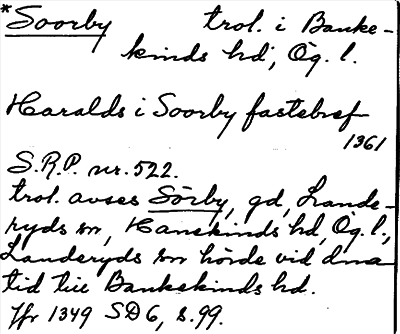 *Soorby trol. i Banke-
kinds hd, Ög. l.
Haralds i Soorby fastebref
1361
S.R.P. nr. 522.
trol. avses Sörby, gd, Lande-
ryds sn, Hanekinds hd, Ög. l.,
Landeryds sn hörde vid dna
tid till Bankekinds hd.
Jfr 1349 SD 6, s. 99.